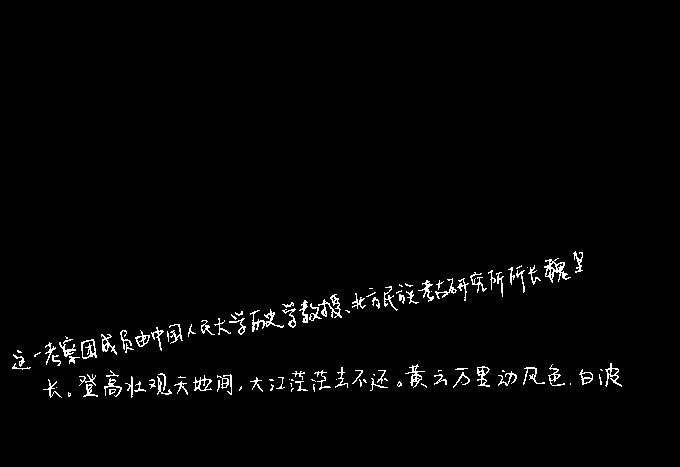 这一考察团成员由中国人民大学历史学教授、北方民族考古研究所所长魏坚
长。登高壮观天地间,大江茫茫去不还。黄云万里动风色.白波